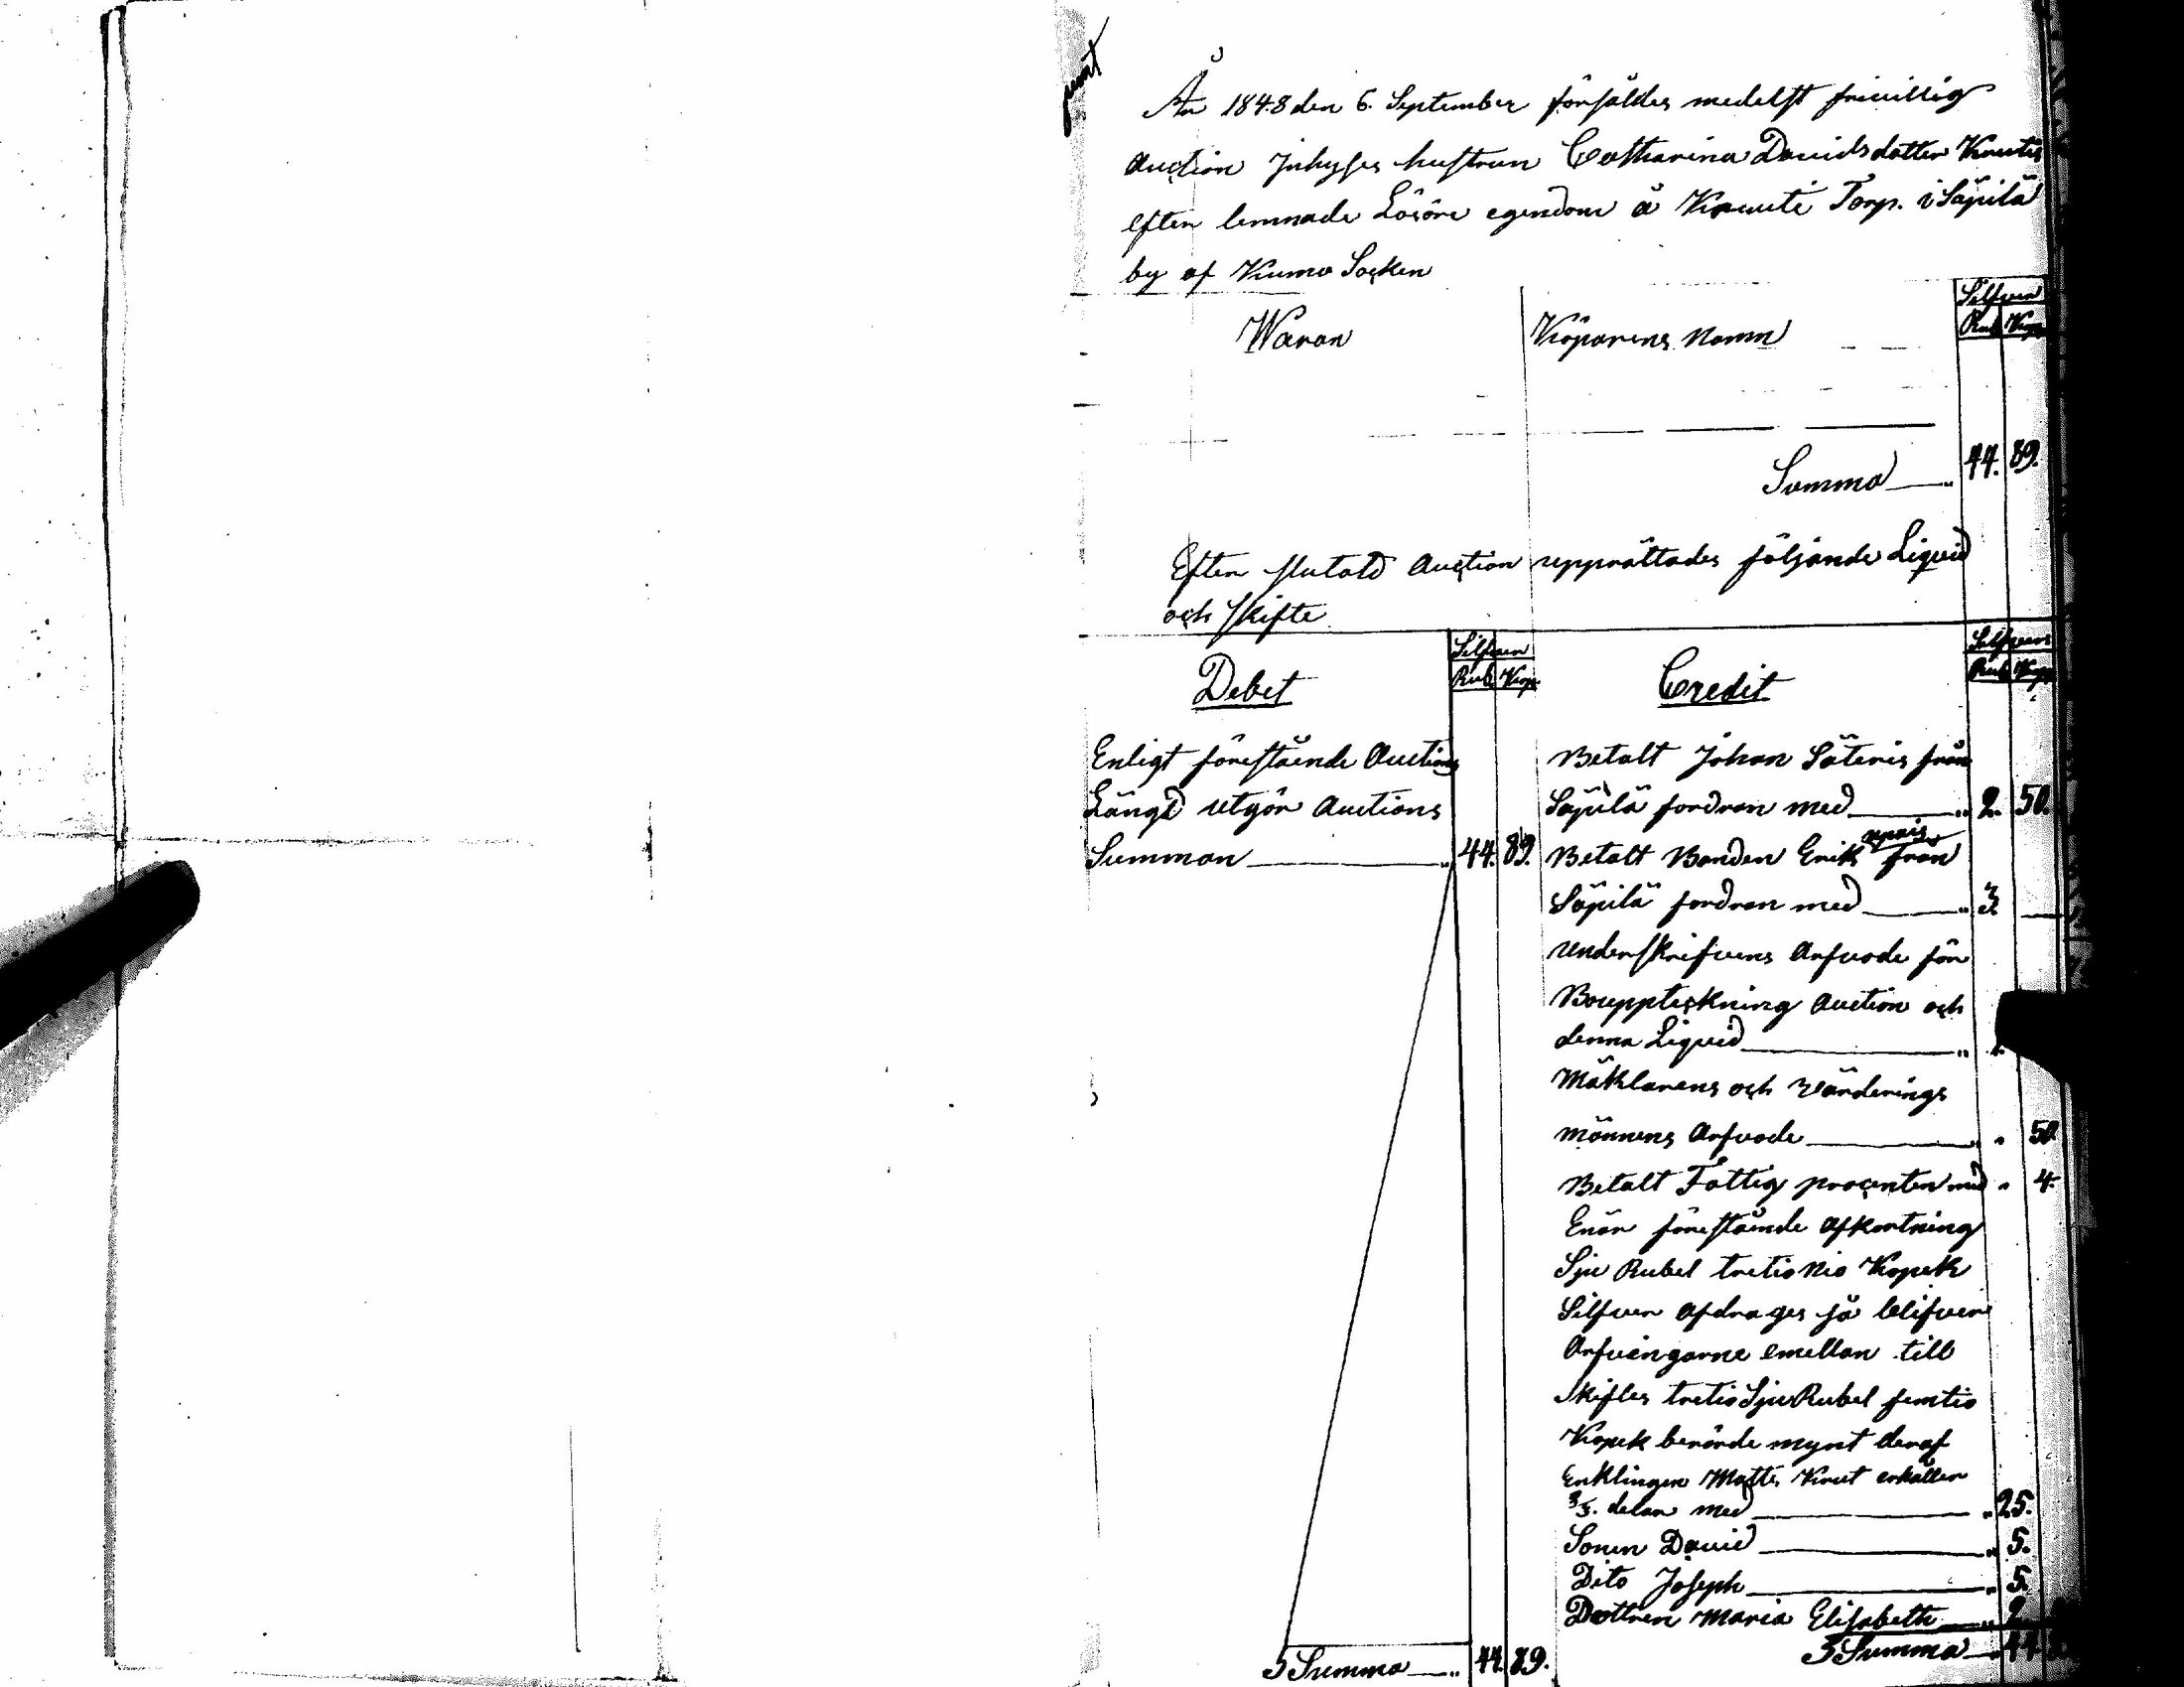 År 1848 den 6. September försåldes medelst frivillig
Auction Inhyses hustrun Catharina Davids dotter Knutis
efter lemnade Lösöre egendom å Knuuti Torp. i Säpilä
by af Kumo Socken
Silfver
Waran Köparens Namn Rub. Kop.
Summa 44. 89.
Efter slutad Auction upprättades följande Liqvid
och skifte
Silfver Silfver
Debet Rub. Kop. Credit Rub. Kop.
Enligt förestående Auctions
Längd utgör Auctions
Summan 44. 89.
Betalt Johan Säteris från
Säpilä fordran med 2. 50.
Betalt Bonden Erik från
Säpilä fordran med 3.
Underskrifvens Arfvode för
Bouppteckning Auction och
denna Liqvid
Mäklarens och Värderings
männens Arfvode 50.
Betalt Fattig procenten med 4.
Enär förestående afkortning
Sju Rubel tretio Nio Kopek
Silfver afdrages så blifver
Arfvingarne emellan till
Skiftes tretio Sju Rubel femtio
Kopek berörde mynt deraf
Enklingen Matts Knut erhåller
delar med 25.
Sonen David 5.
Dito Joseph 5.
Dottren Maria Elisabeth 2.
Summa 44. 89. Summa 44.